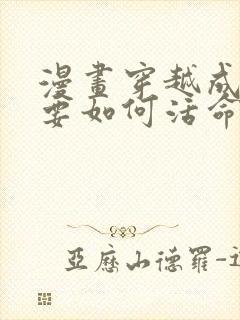 漫畫穿越成
要如何活命
亞歷山德羅-